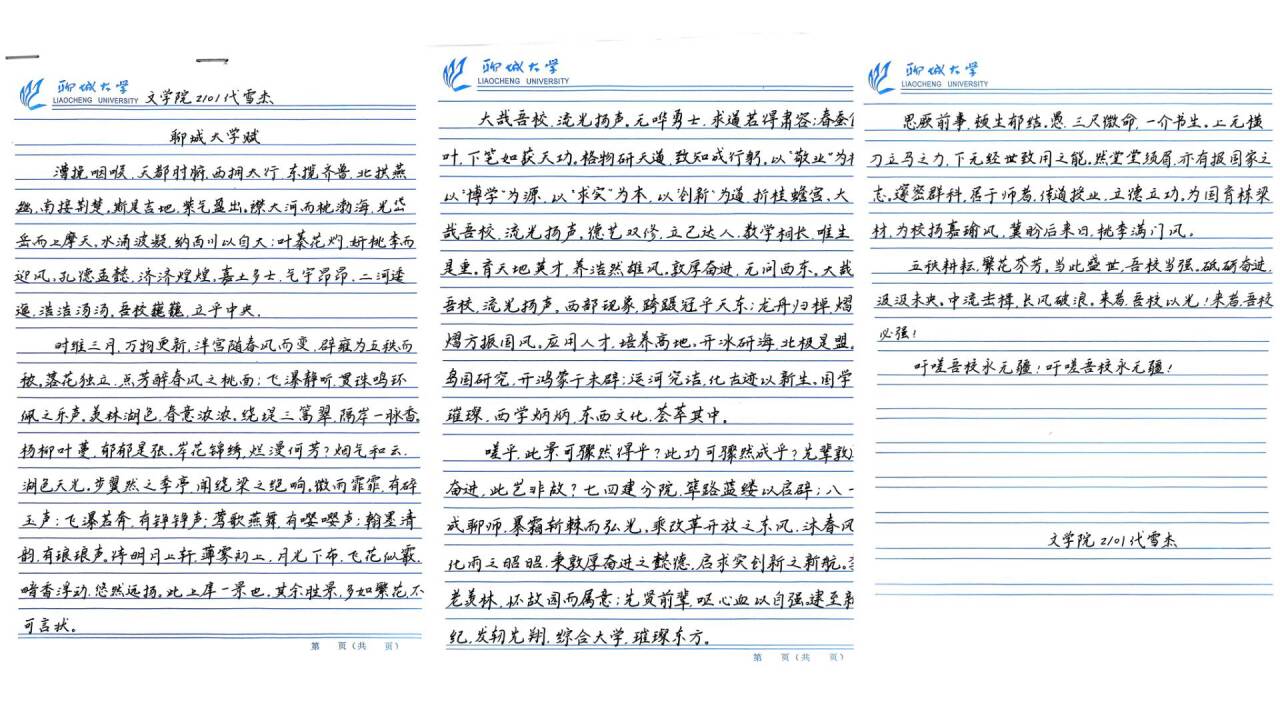 聊城大学
LIAOCHENG UNIVERSITY
文学院2101代雪杰
聊城大学赋
漕挽咽喉，天都肘腑，西拥太行，东揽齐鲁，北拱燕
幽，南接荆楚。斯是吉地，紫气盈出。襟大河而桃渤海，光岱
岳而上摩天。水涌波凝，纳百川以自大；叶蓁花灼，妍桃李而
迎风。孔德孟懿，济济煌煌，嘉士多士，气宇昂昂。二河逶
迤，浩浩汤汤，吾校巍巍，立乎中央。
时维三月，万物更新，泮宫随春风而变，辟雍为五秩而
被。落花独立，点芳醉春风之桃面；飞瀑静听，贯珠鸣环
佩之乐声。羡林湖色，春意浓浓。绕堤三篙翠，隔岸一脉香。
杨柳叶蔓，郁郁是张。岸花锦绣，烂漫何芳？烟气和云，
湖色天光。步翼然之季亭，闻绕梁之绝响。微雨霏霏，有碎
玉声；飞瀑若奔，有铮铮声；莺歌燕舞，有嘤嘤声；翰墨清
韵，有琅琅声。待明月上轩，薄雾初上，月光下布，飞花似霰，
暗香浮动，悠然远扬。此上庠一景也。其余胜景，多如繁花，不
可言状。
第 页（共 页）
聊城大学
LIAOCHENG UNIVERSITY
大哉吾校，流光扬声。元哗勇士，求道若得肃容；春蚕
叶，下笔如获天功。格物研天道，致知成行躬。以“敬业”为
以“博学”为源，以“求实”为本，以“创新”为道，折桂蟾宫。大
哉吾校，流光扬声。德艺双修，立己达人，教学相长，唯生
是重。育天地英才，养浩然雄风。敦厚奋进，无问西东。大哉
吾校，流光扬声。西部现象，跨蹑冠乎天东；龙舟归棹，熠
熠方振国风。应用人才，培养高地。开冰研海，北极是盟。
岛国研究，开鸿蒙于未辟；运河究洁，化古迹以新生。国学
璀璨，西学炳炳，东西文化，荟萃其中。
嗟乎，此景可骤然得乎？此功可骤然成乎？先辈敦
奋进，此岂非故？七四建分院，筚路蓝缕以启辟；八一
成聊师，暴霜斩棘而弘光。乘改革开放之东风，沐春风
化雨之昭昭，秉敦厚奋进之懿德，启求实创新之新航。
老羡林，怀故园而属意；先贤前辈，呕心血以自强。建至新
纪，发轫先翔，综合大学，璀璨东方。
第 页（共 页）
聊城大学
LIAOCHENG UNIVERSITY
思厥前事，顿生郁结。愚，三尺微命，一介书生。上无横
刀立马之力，下无经世致用之能。然堂堂须眉，亦有报国家之
志。邃密群科，居于师者，传道授业，立德立功。为国育栋梁
材，为校扬嘉瑜风，冀盼后来日，桃李满门风。
五秩耕耘，繁花芬芳。当此盛世，吾校当强。砥砺奋进，
汲汲未央。中流击楫，长风破浪。来者，吾校以光！来者，吾校
必强！
吁嗟吾校永无疆！吁嗟吾校永无疆！
文学院2101代雪杰